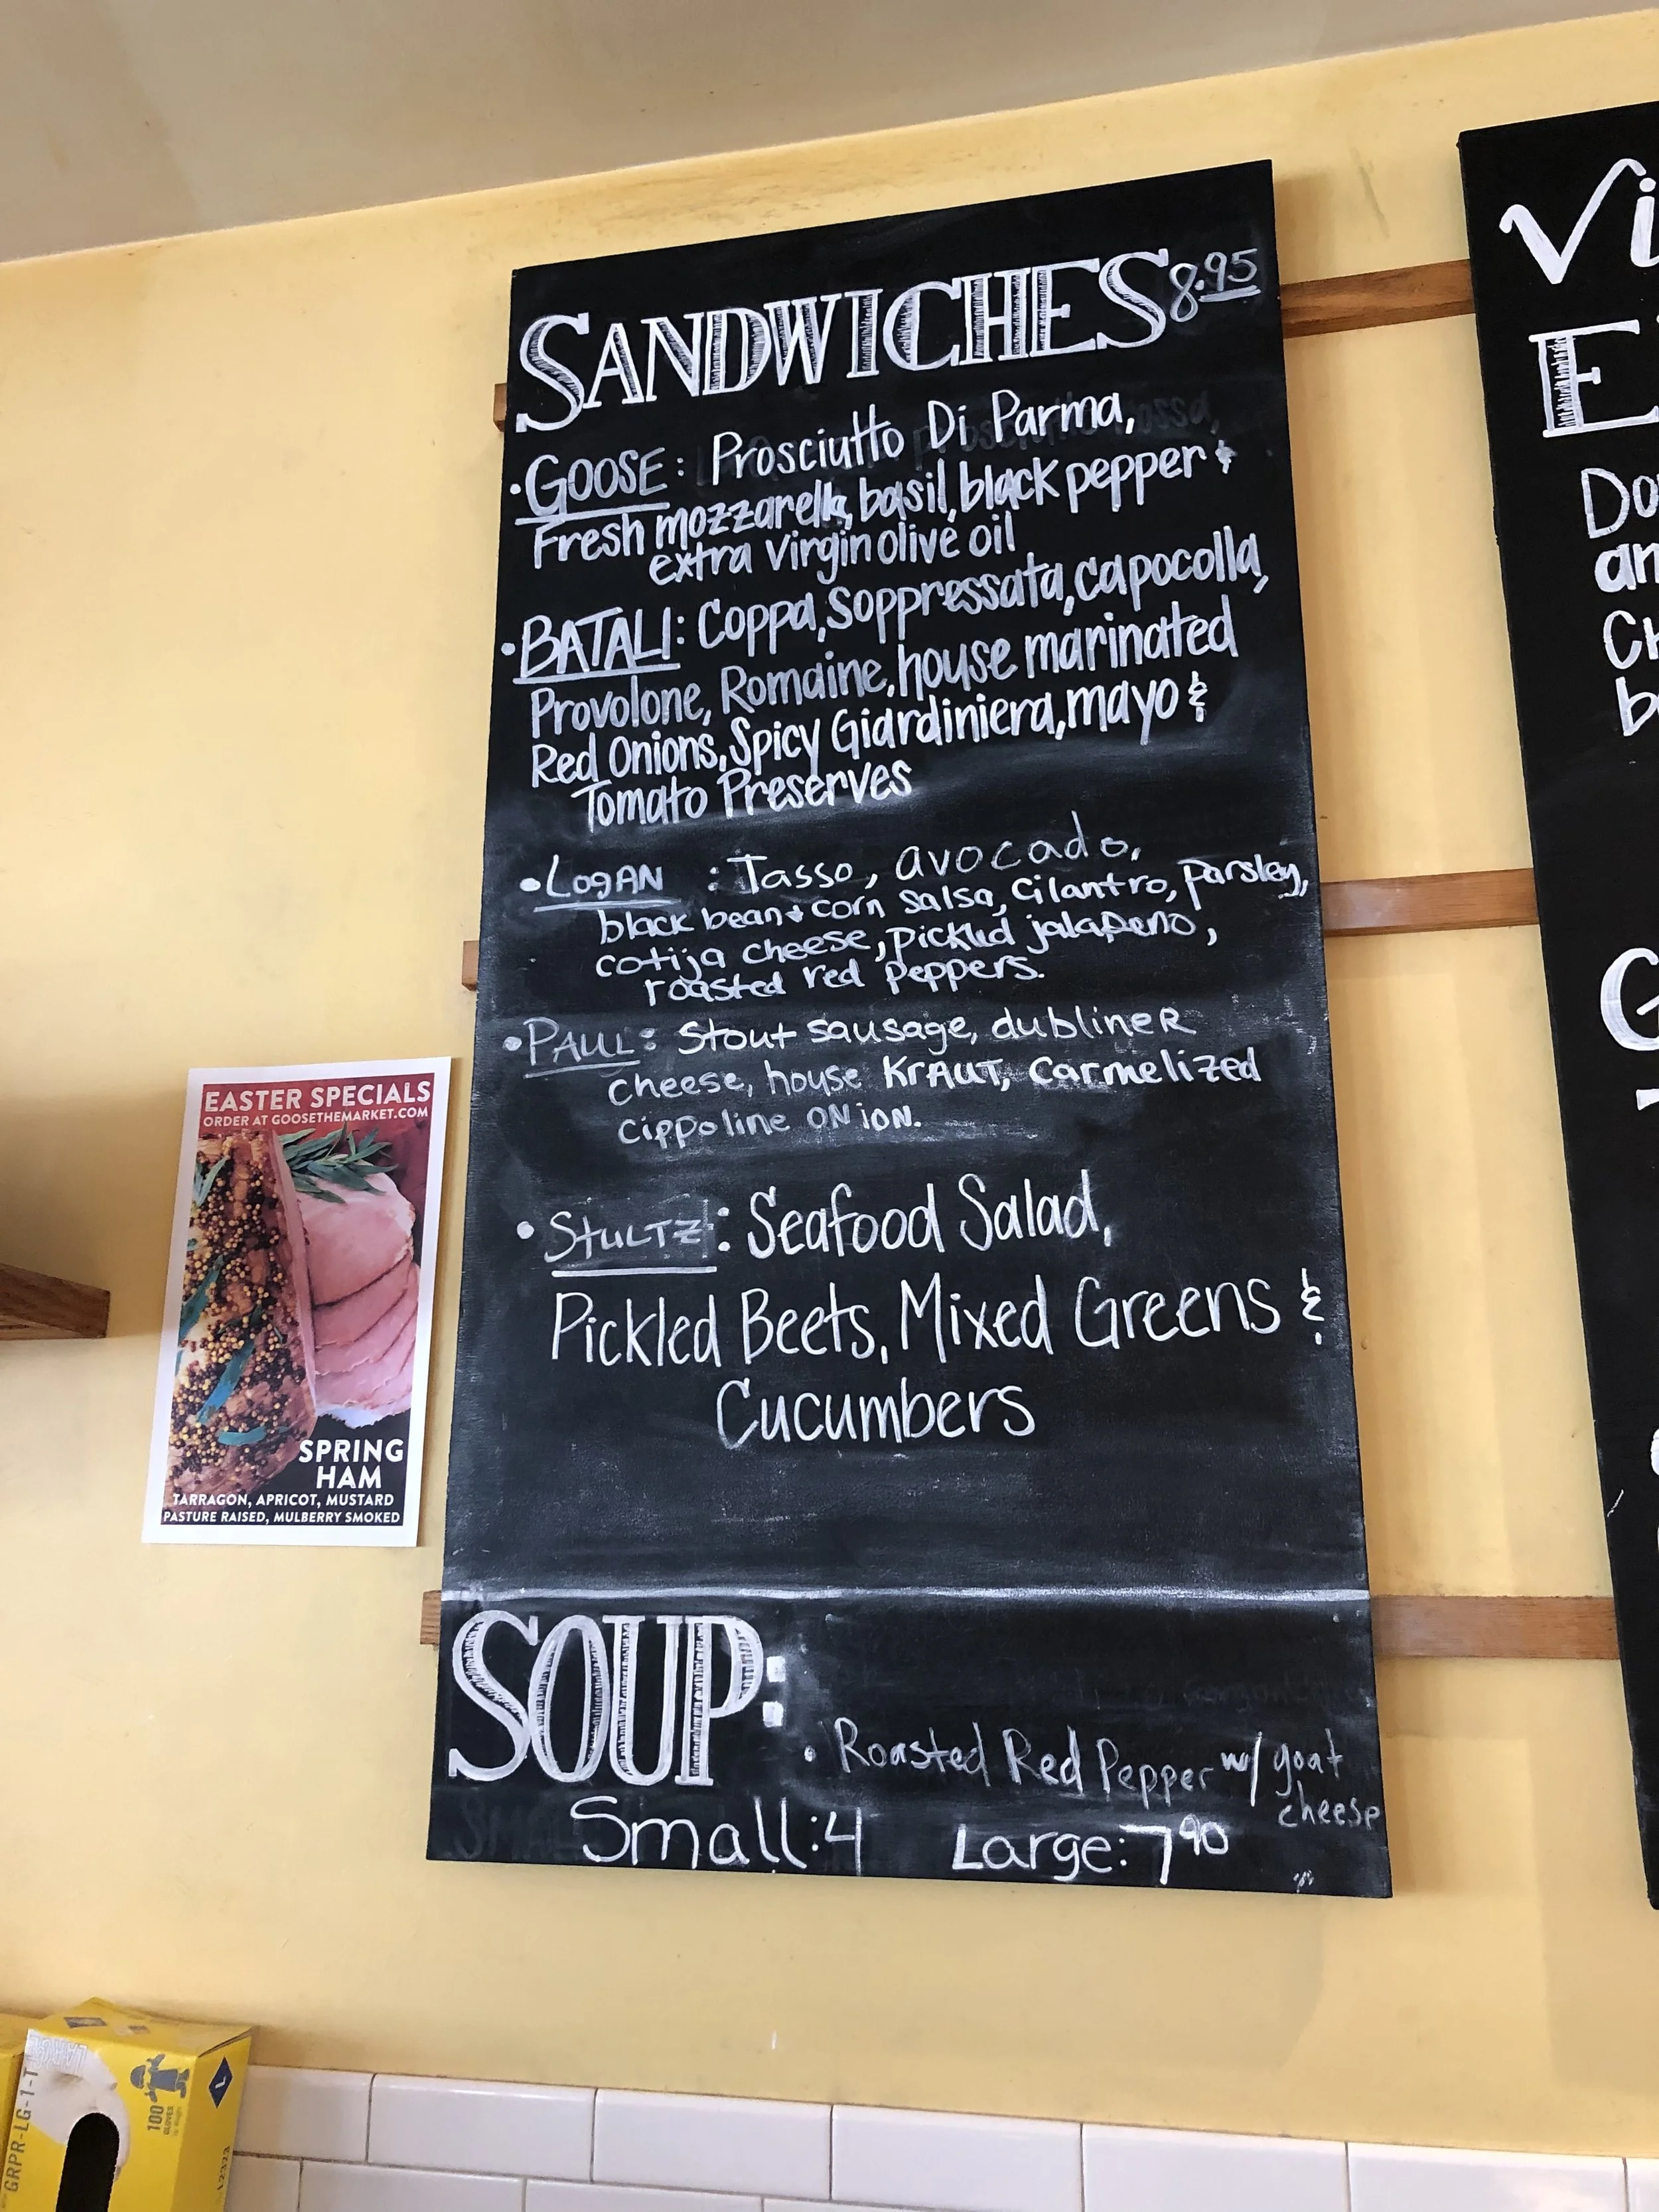 SANDWICHES 8.95
• GOOSE: Prosciutto Di Parma,
Fresh mozzarella, basil, black pepper &
extra virgin olive oil
• BATALI: Coppa, Soppressata, capocolla,
Provolone, Romaine, house marinated
Red Onions, Spicy Giardiniera, mayo &
Tomato Preserves
• LOgAN : Tasso, avocado,
black bean + corn salsa, Cilantro, parsley,
cotija cheese, pickled jalapeno,
roasted red peppers.
• PAUL: Stout sausage, dublineR
cheese, house KrAUT, Carmelized
cippoline ONiON.
• StULTZ: Seafood Salad,
Pickled Beets, Mixed Greens &
Cucumbers
SOUP:
• Roasted Red Pepper w/ goat
cheese
Small: 4 Large: 7 90
EASTER SPECIALS
ORDER AT GOOSETHEMARKET.COM
SPRING
HAM
TARRAGON, APRICOT, MUSTARD
PASTURE RAISED, MULBERRY SMOKED
Vi
E
Do
an
Ch
b
G
GRPR-LG-1-T
LARGE
100
GLOVES
L